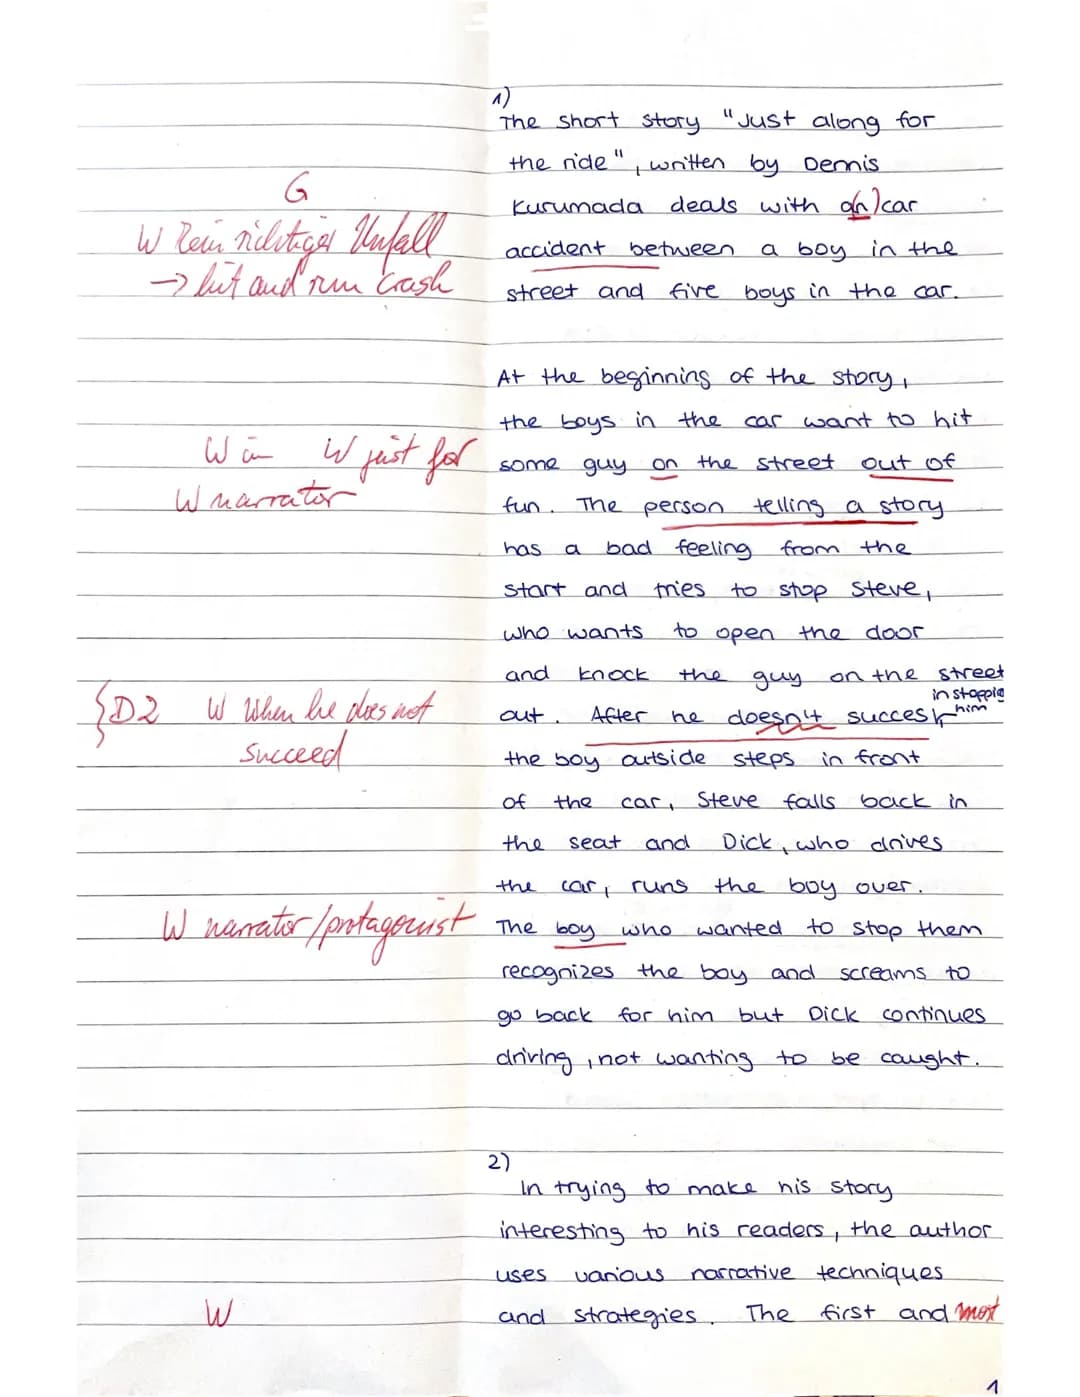 1)
The short story "Just along for
the ride", written by Dennis
G
Kurumada deals with a(n) car
W kein richtiger Unfall
accident between a boy in the
→ hit and run crash
street and five boys in the car.
At the beginning of the story,
the boys in the car want to hit
W in W just for
some guy on the street out of
W narrator
fun. The person telling a story
has a bad feeling from the
start and tries to stop Steve,
who wants to open the door
and knock the guy on the street
in stoppig
him
D2 W When he does not
out. After he doesn't succes
succeed
the boy outside steps in front
of the car, Steve falls back in
the seat and Dick, who drives
the car, runs the boy over.
W narrator/protagonist
The boy who wanted to stop them
recognizes the boy and screams to
go back for him but Dick continues
driving, not wanting to be caught.
2)
In trying to make his story
interesting to his readers, the author
uses various narrative techniques
W
and strategies. The first and most
1